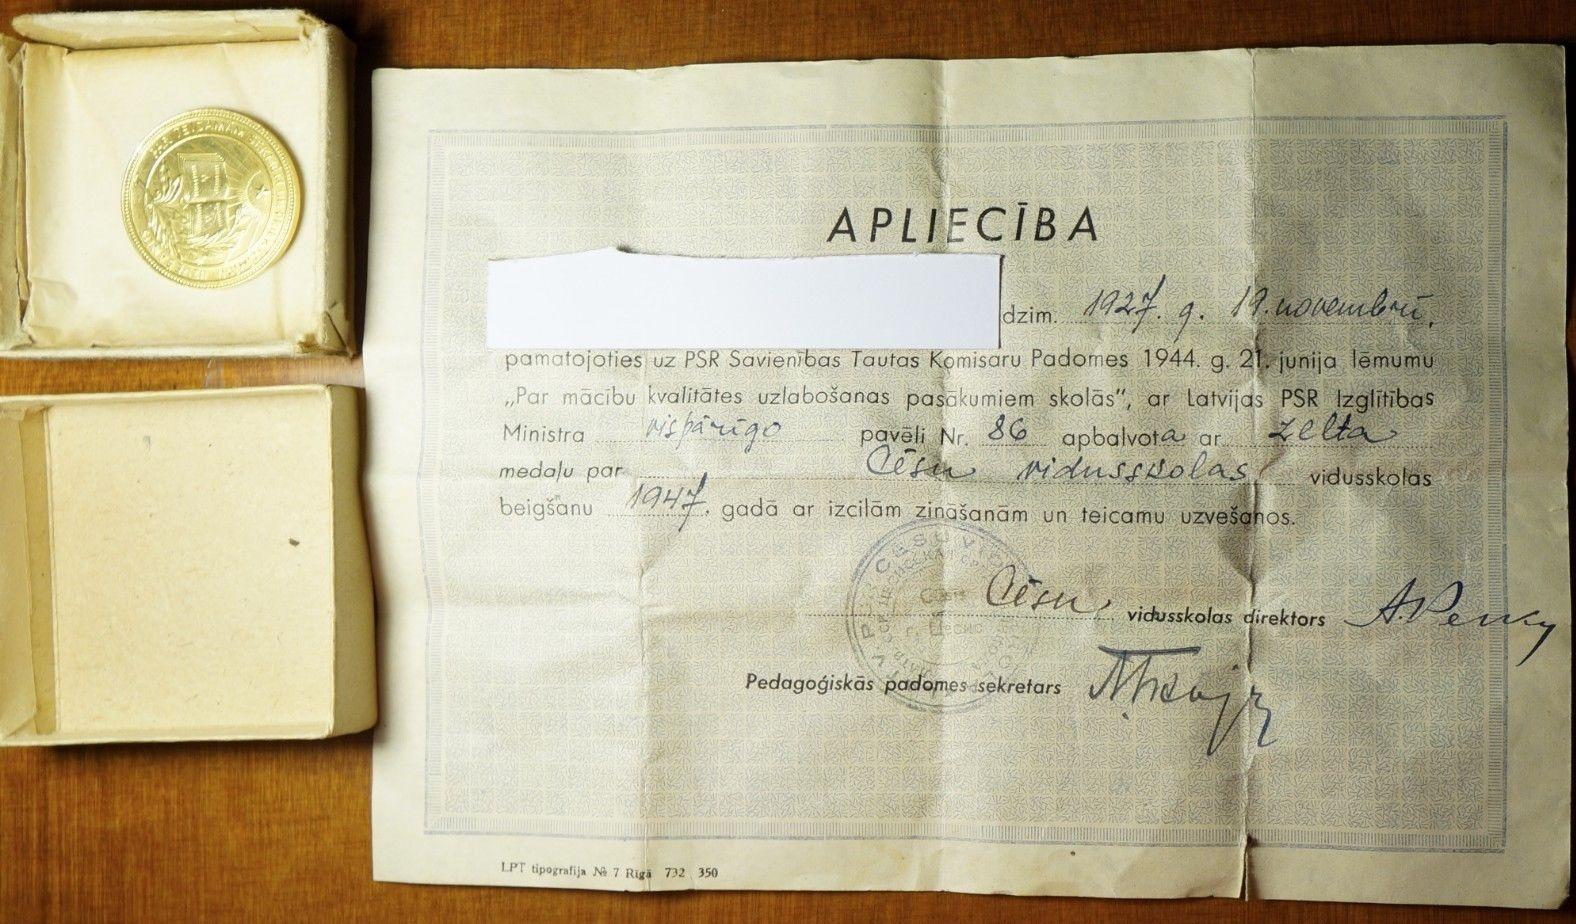 APLIECĪBA
dzim. 1927. g. 19. novembrī,
pamatojoties uz PSR Savienības Tautas Komisaru Padomes 1944. g. 21. junija lēmumu
„Par mācību kvalitātes uzlabošanas pasākumiem skolās”, ar Latvijas PSR Izglītības
Ministra vispārīgo pavēli Nr. 86 apbalvota ar zelta
medaļu par Cēsu vidusskolas vidusskolas
beigšanu 1947. gadā ar izcilām zināšanām un teicamu uzvešanos.
Cēsu vidusskolas direktors
Pedagoģiskās padomes sekretars
LPT tipografija № 7 Rīgā 732 350